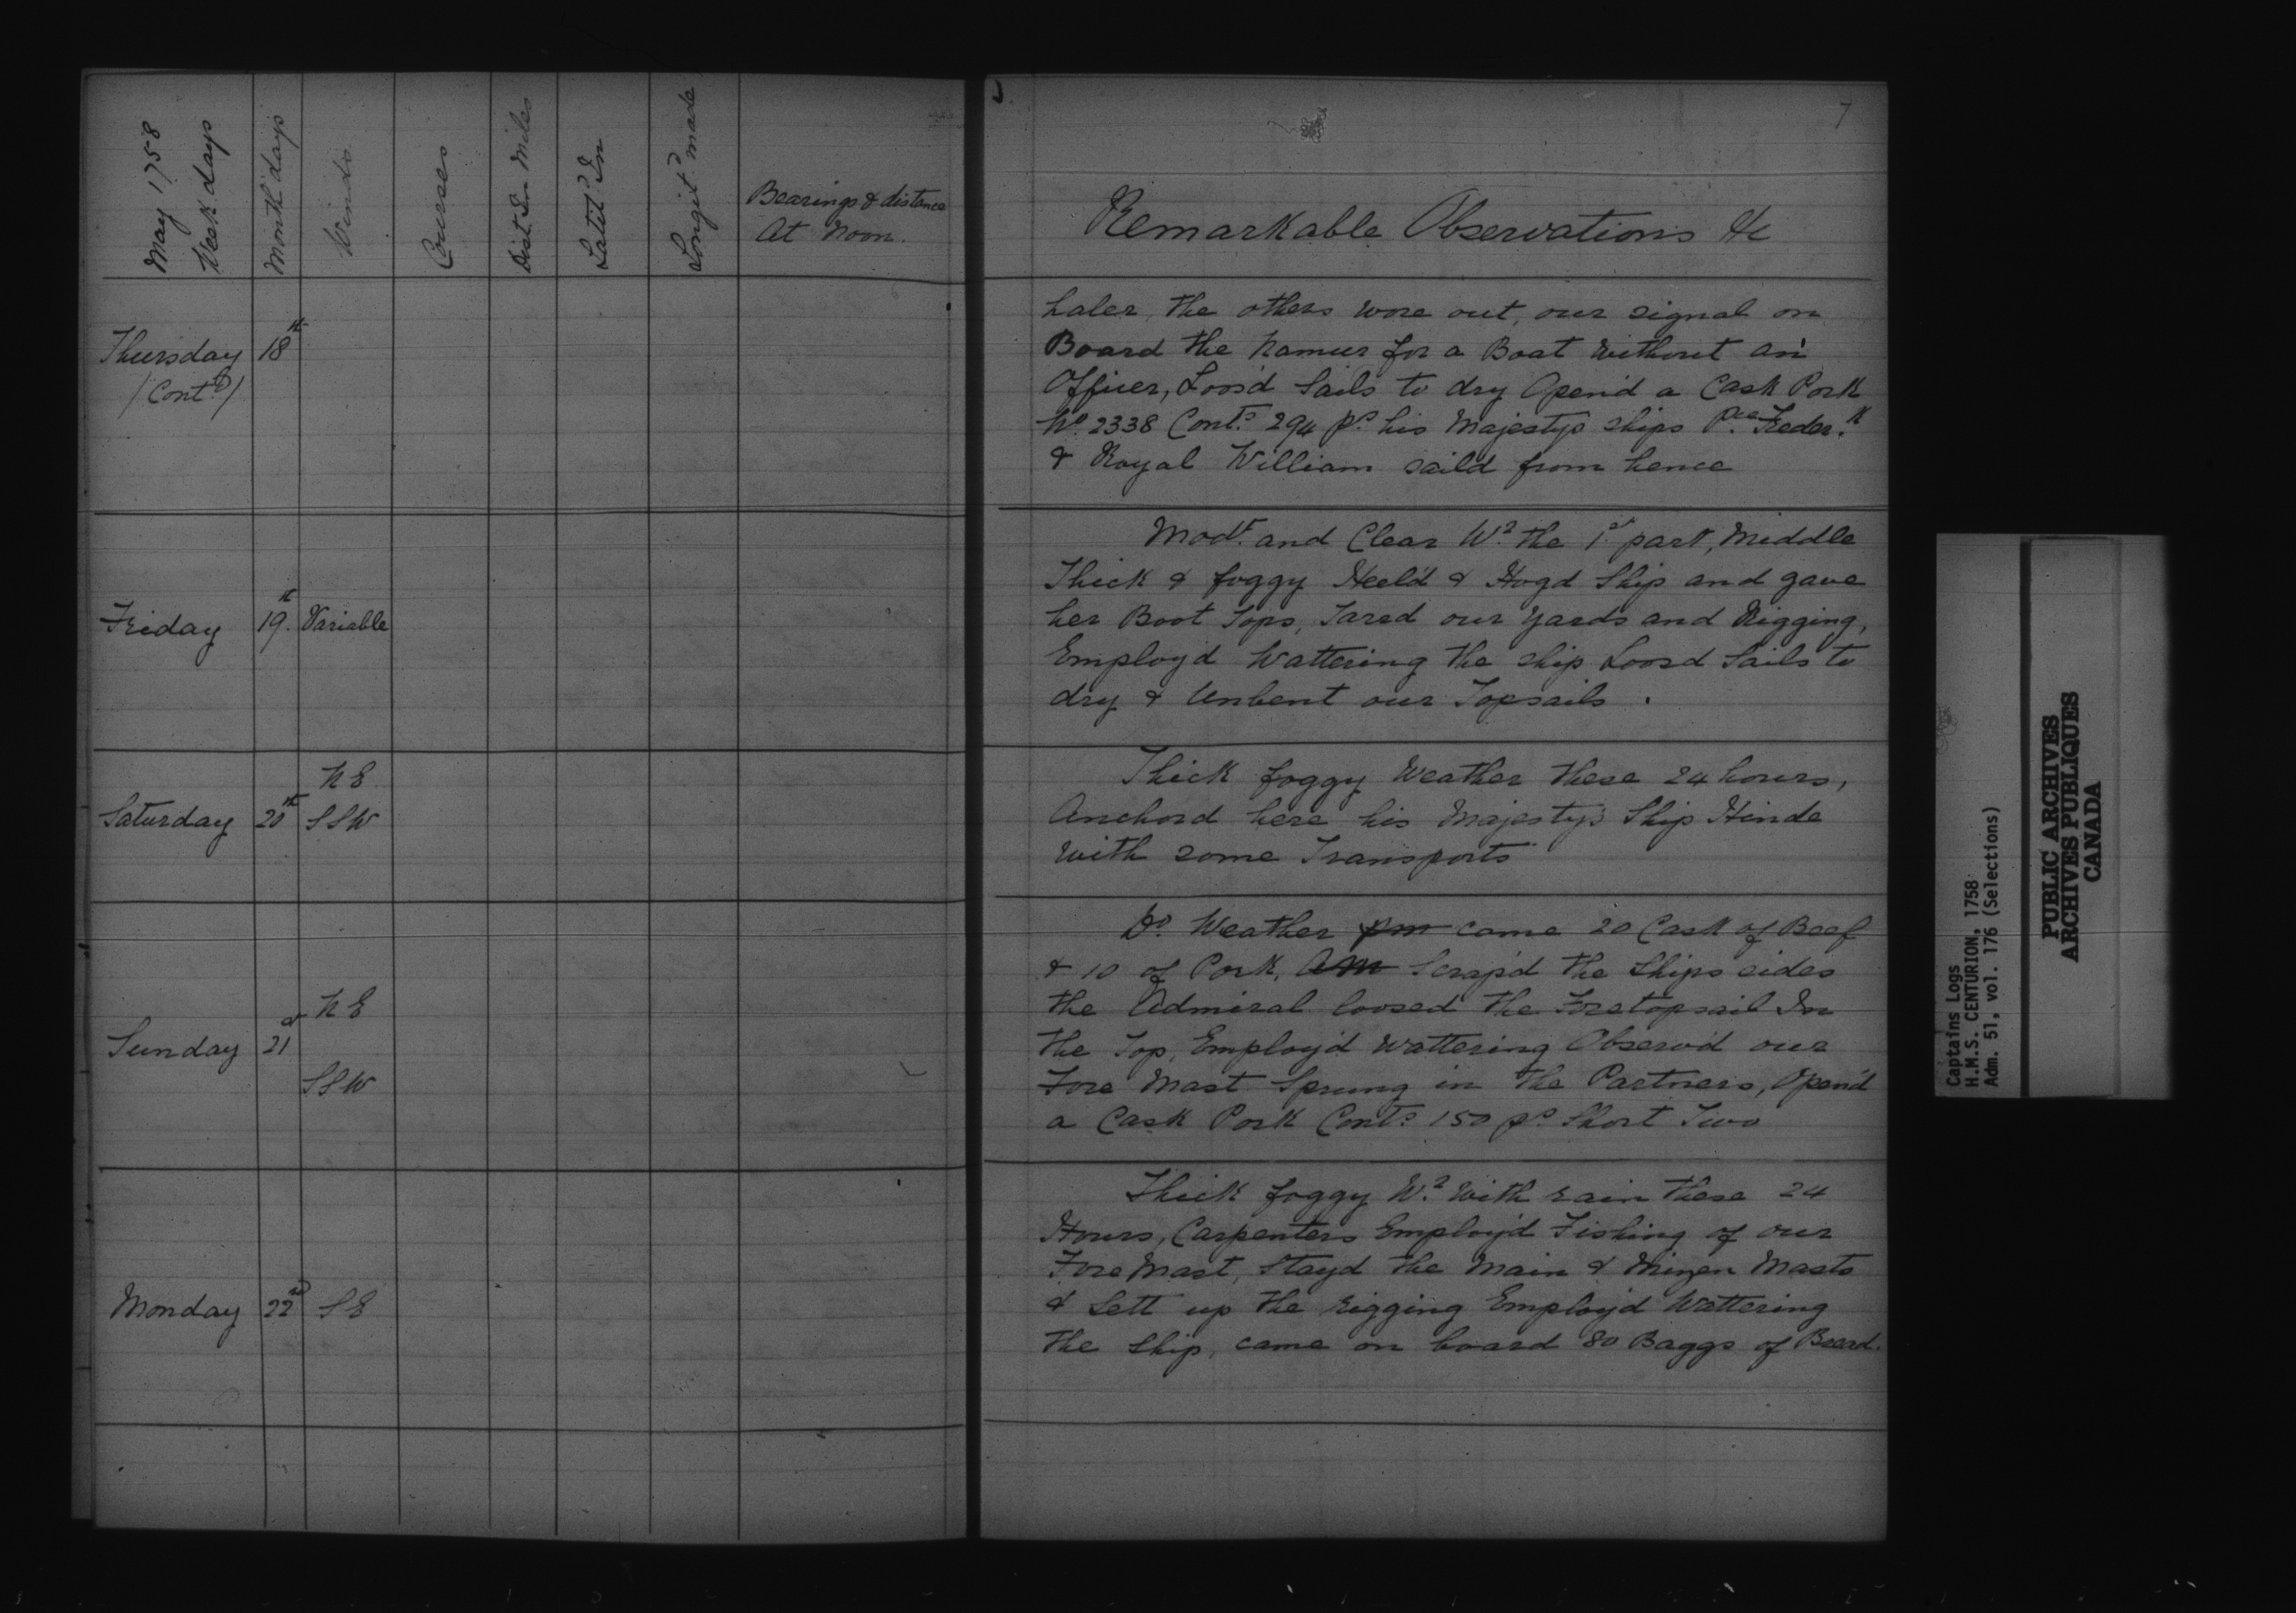 May 1758
Week days
Month days
Winds
Courses
Dist. In Miles
Latit.d In
Longit.d made
Bearings & distance
At Noon.
Thursday 18th
/Cont.d/
Friday 19.th Variable
N E
Saturday 20th S S W
N E
Sunday 21st
S S W
Monday 22nd S E
7
Remarkable Observations &c
haler, the others wore out, our signal on
Board the Namur for a Boat without an
Officer, Loos'd Sails to dry Open'd a Cask Pork
No. 2338 Cont.g 294 ps. his Majestys ships P.ce Freder.k
& Royal William saild from hence
Modt. and Clear W.r the 1.st part, Middle
Thick & foggy Heel'd & Hogd Ship and gave
her Boot Tops, Tared our Yards and Rigging,
Employd Wattering the ship Loosd Sails to
dry & Unbent our Topsails .
Thick foggy Weather these 24 hours,
Anchord here his Majesty's Ship Hinde
with some Transports
Do. Weather pm came 20 Cask of Beef
& 10 of Pork, am Scrap'd the Ships sides
the Admiral loosed the Foretopsail In
the Top, Employ'd Wattering Observ'd our
Fore Mast Sprung in the Partners, Open'd
a Cask Pork Cont.g 150 ps. Short Two
Thick foggy W.r with rain these 24
Hours, Carpenters Employ'd Fishing of our
Fore Mast, Stayd the Main & Mizen Masts
& Sett up the rigging Employ'd Wattering
the Ship, came on board 80 Baggs of Bread.
Captains Logs
H.M.S. CENTURION, 1758
Adm. 51, vol. 176 (Selections)
PUBLIC ARCHIVES
ARCHIVES PUBLIQUES
CANADA